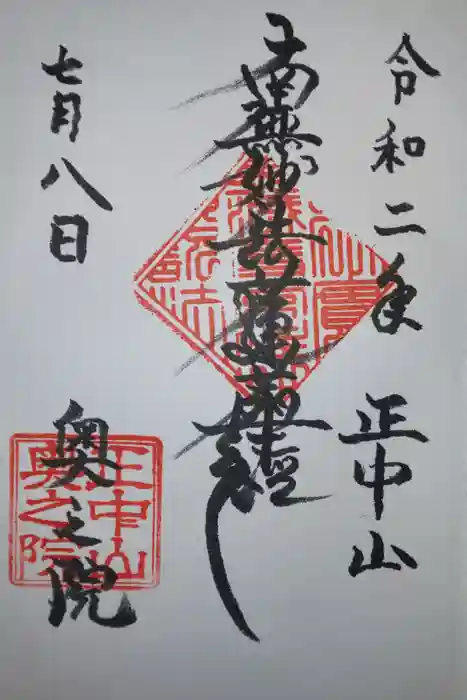 令和二年 正中山
南無妙法蓮華経
七月八日 奥之院
正中山
奥之院